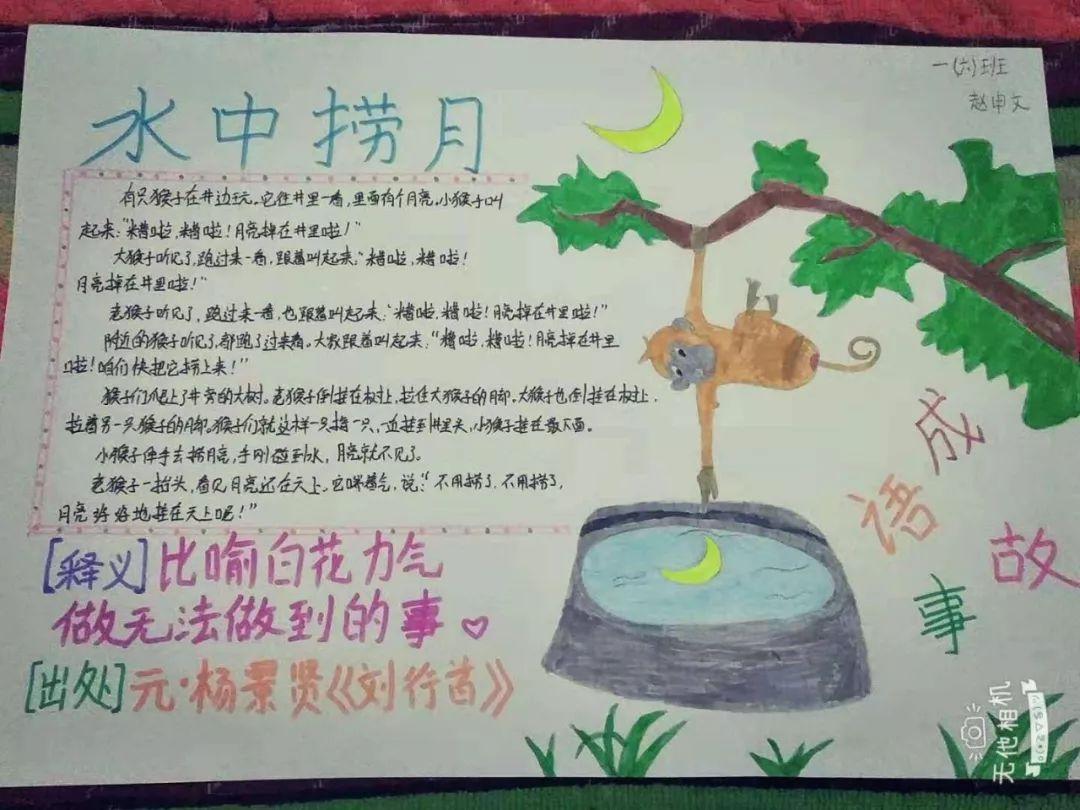 一(六)班
赵申文
水中捞月
有只猴子在井边玩。它往井里一看,里面有个月亮。小猴子叫
起来:“糟啦,糟啦!月亮掉在井里啦!”
大猴子听见了,跑过来一看,跟着叫起来:“糟啦,糟啦!
月亮掉在井里啦!”
老猴子听见了,跑过来一看,也跟着叫起来:“糟啦,糟啦!月亮掉在井里啦!”
附近的猴子听见了,都跑了过来看。大教跟着叫起来:“糟啦,糟啦!月亮掉在井里
啦!咱们快把它捞上来!”
猴子们爬上了井旁的大树。老猴子倒挂在树上,拉住大猴子的脚。大猴子也倒挂在树上,
拉着另一只猴子的脚。猴子们就这样一只接一只,一直挂到井里头,小猴子挂在最下面。
小猴子伸手去捞月亮,手刚碰到水,月亮就不见了。
老猴子一抬头,看见月亮还在天上。它喘着气,说:“不用捞了,不用捞了,
月亮好好地挂在天上呢!”
[释义]比喻白花力气
做无法做到的事
[出处]元·杨景贤《刘行首》
成语故事
无他相机